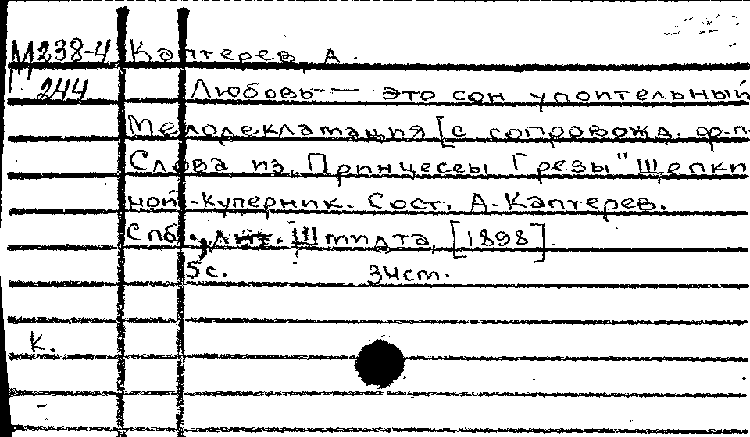 М238-4 Каптерев, А.
244 Любовь — это сон упоительный
Мелодекламация [с сопровожд. ф.-п.
Слова из „Принцессы Грезы" Щепки
ной-Куперник. Сост. А. Каптерев.
Спб., лит. Шмидта, [1898]
5 с. 34 ст.
К.